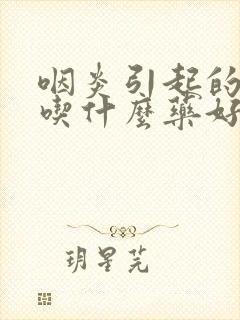 咽炎引起的
喫什麼藥好
玥星芫